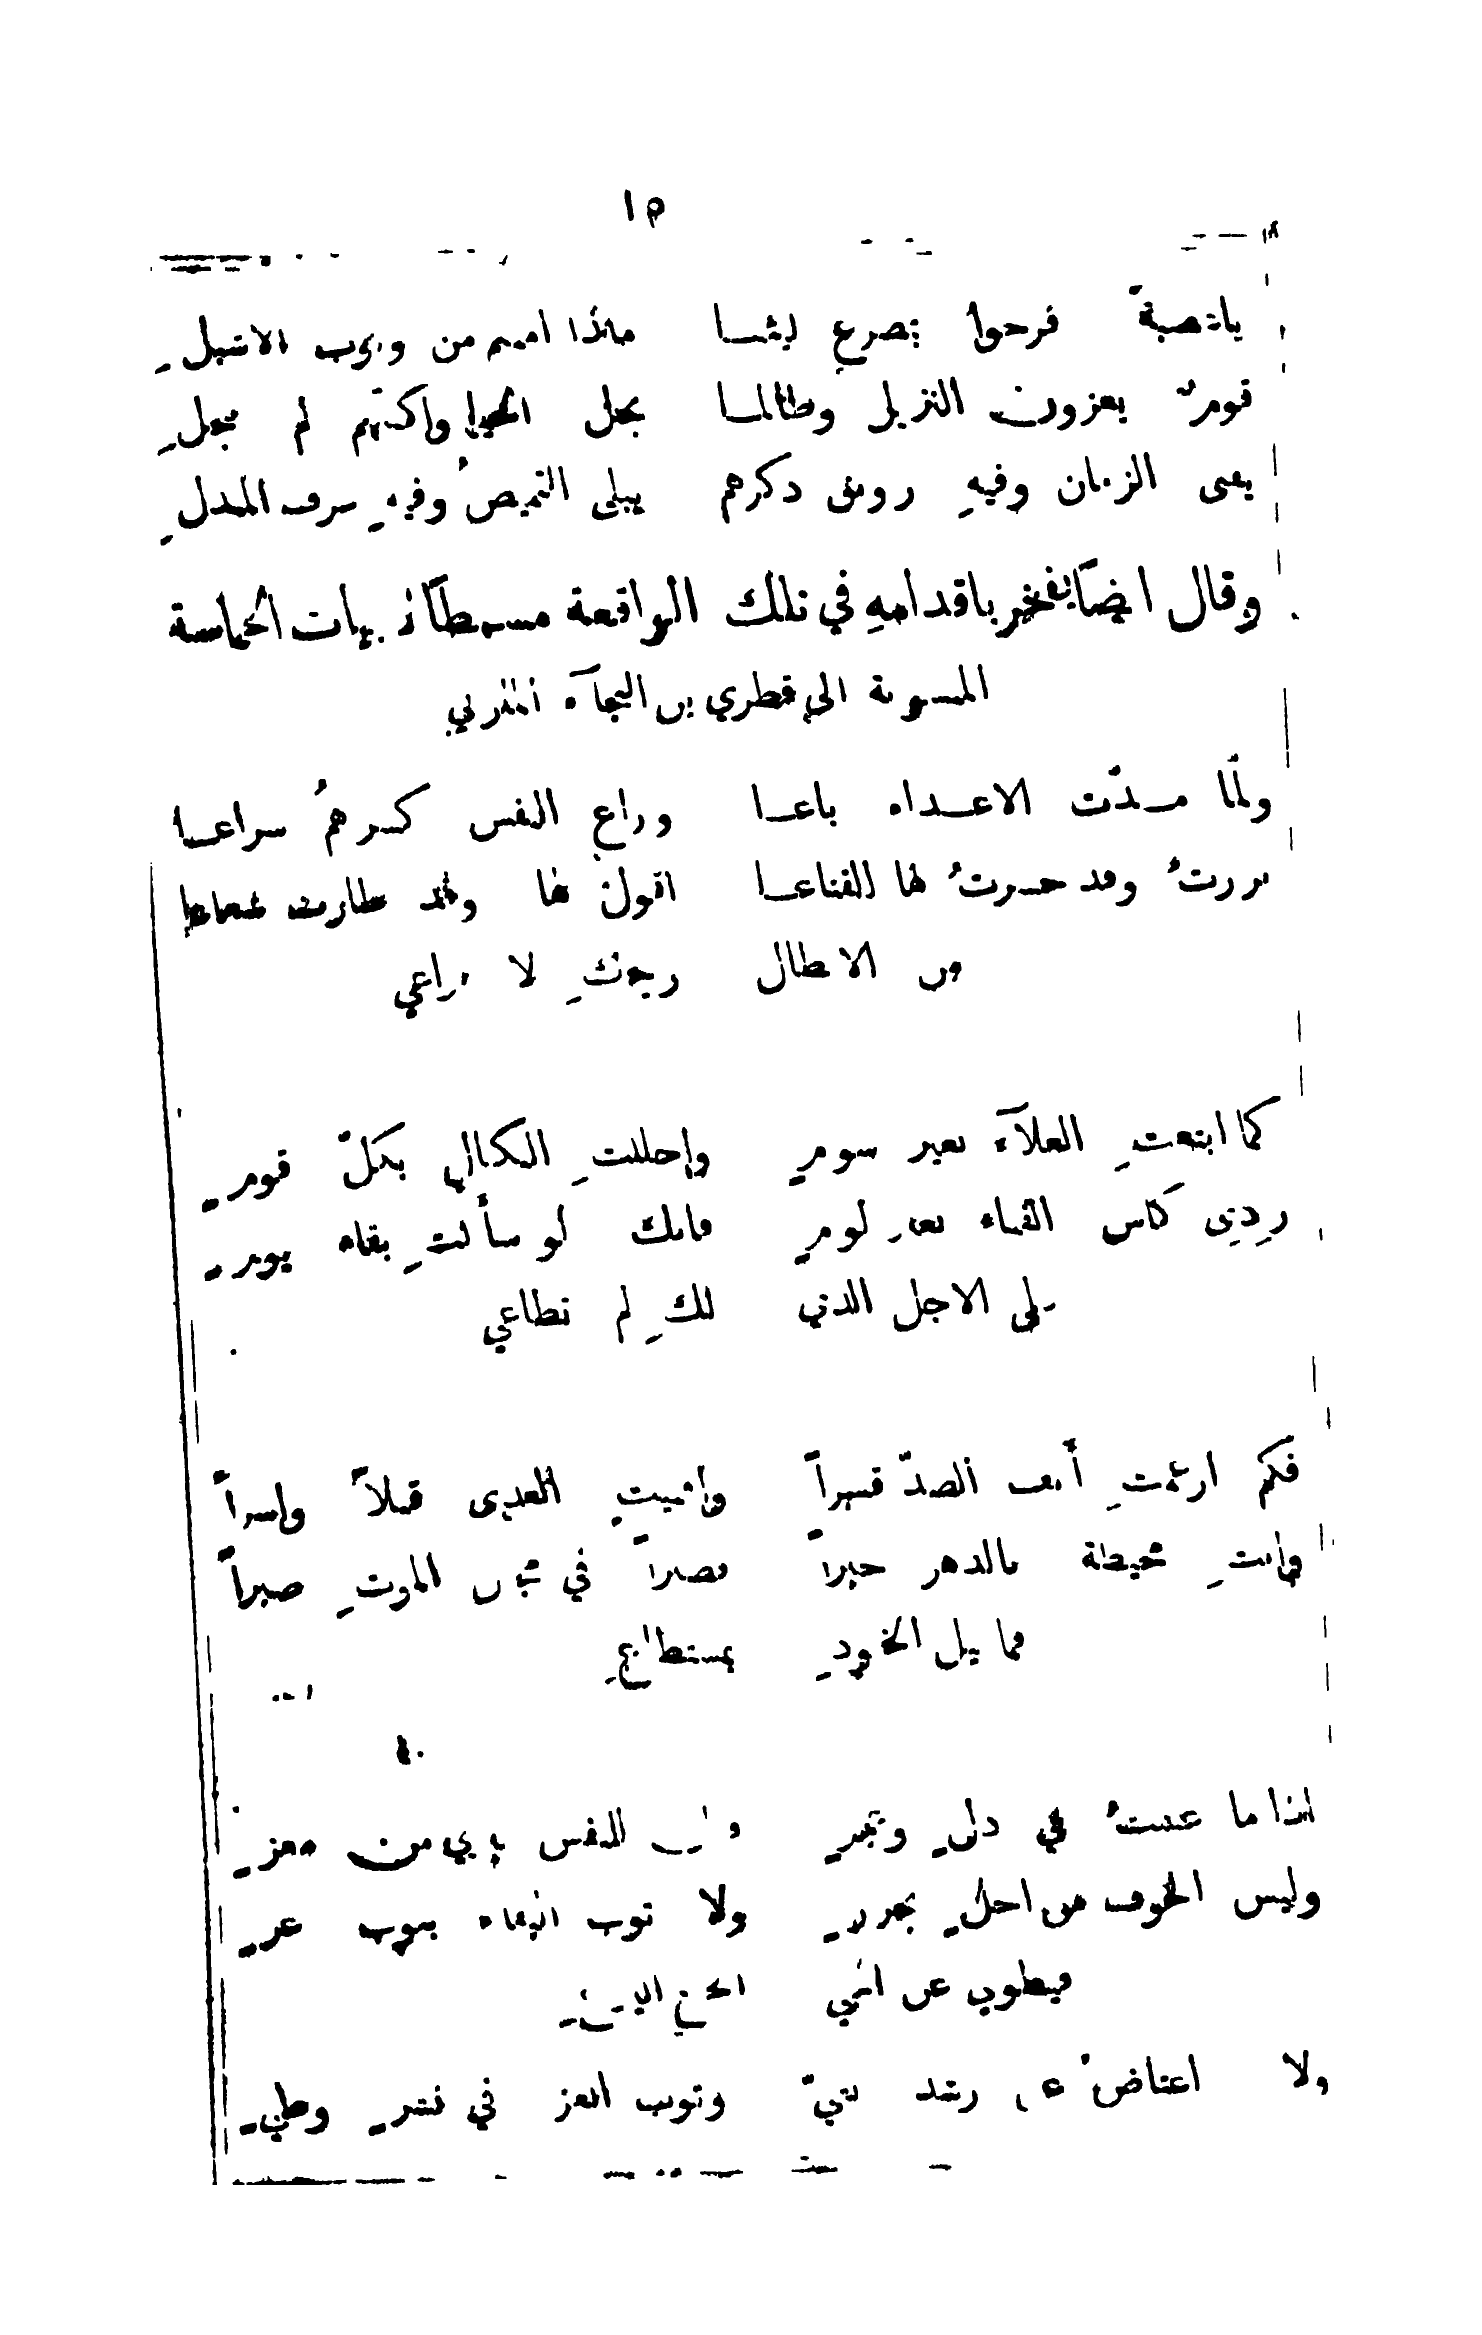 ١٥
ياعصبةً فرحوا بمصرع ليثنا ماذا امنتم من وثوب الاشبلِ
قومٌ يعزون النزيل وطالما بخل الحيا واكفهم لم تبخلِ
يفنى الزمان وفيهِ رونق ذكرهم يبلى القميصُ وفيهِ عرف المندلِ
وقال ايضًا يفخر باقدامهِ في تلك الواقعة مسمطًا لابيات الحماسة
المنسوبة الى قطري بن الفجآءة المازني
ولمّا مدّت الاعداء باعا وراع النفس كرهمُ سراعا
برزتُ وقد حسرتُ لها القناعا اقول لها وقد طارت شعاعا
من الابطال ويحكِ لا تراعي
كما ابتعتِ العلآء بغير سومِ واحللتِ النكال بكلّ قومِ
رِدِي كاس الفناء بغير لومِ فانك لو سألتِ بقاء يومِ
على الاجل الذي لكِ لم تطاعي
فكم ارغمتِ أنف الضدّ قسراً وافنيتِ العدى قتلاً واسراً
وانتِ محيطة بالدهر خبراً فصبراً في مجال الموتِ صبراً
فما نيل الخلودِ بمستطاعِ
اذا ما عشتُ في ذلٍ وعجزِ النفس من معزِ
وليس الخوف من اجلٍ بحرزِ ولا ثوب البقاء بثوب عزِ
فيطوى عن اخي الخنع اليراعِ
ولا اعتاضُ عن رشد بغيّ وثوب العز في نشرٍ وطيِّ